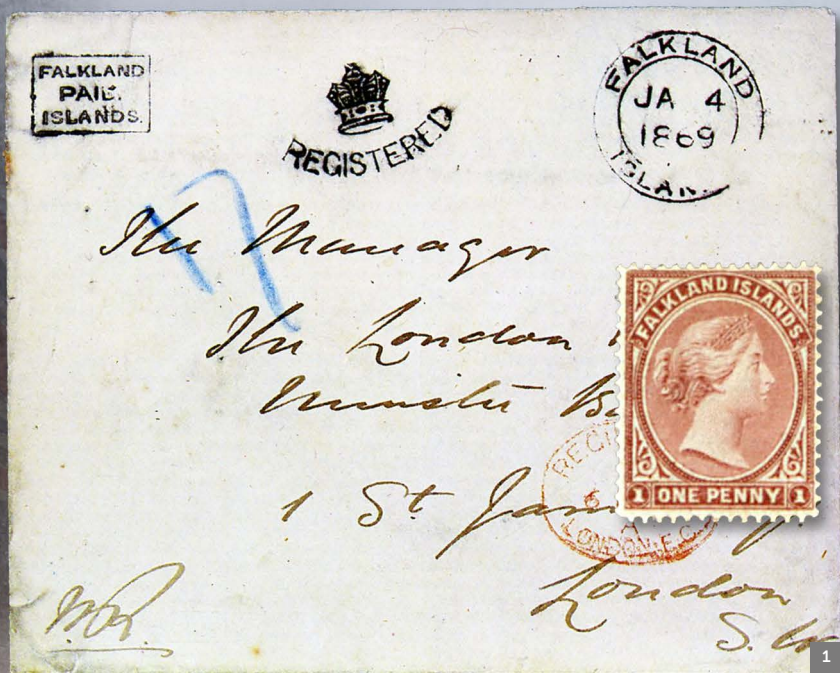 FALKLAND
PAID.
ISLANDS.
REGISTERED
FALKLAND
JA 4
1869
The Manager
The London
1 St Jam
London
S.W
FALKLAND ISLANDS
1 ONE PENNY 1
LONDON.E.C.
1